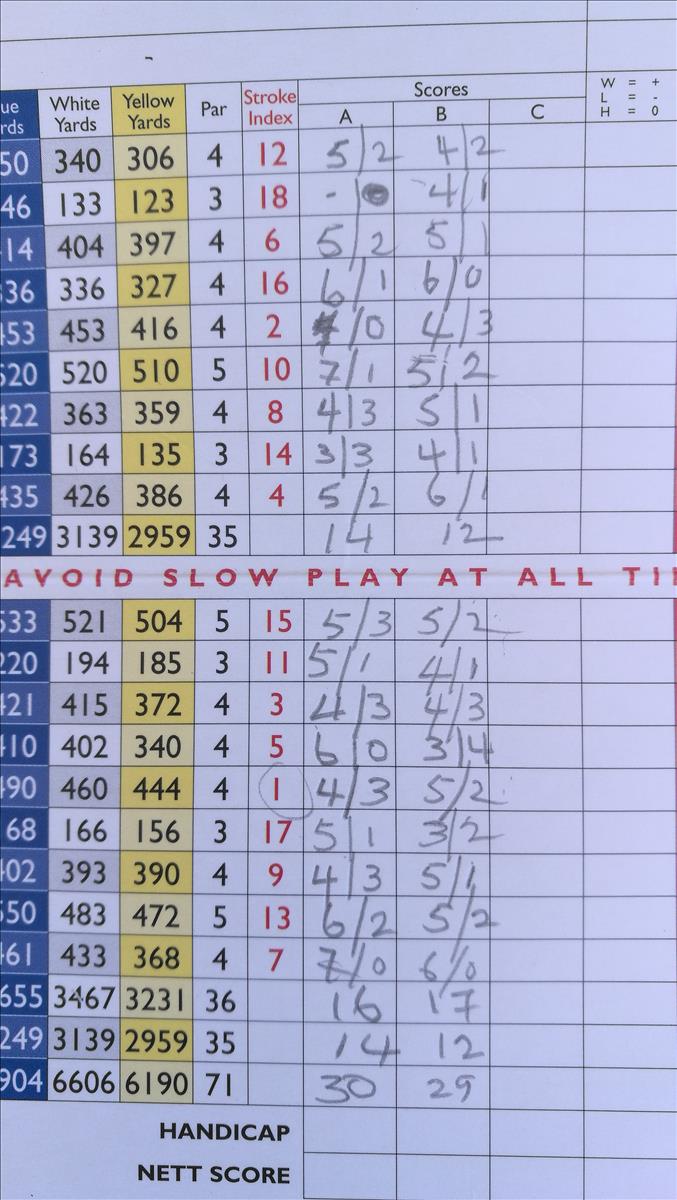 Scores W = +
ue White Yellow Par Stroke L = -
rds Yards Yards Index A B C H = 0
50 340 306 4 12 5/2 4/2
46 133 123 3 18 - 4/1
14 404 397 4 6 5/2 5/1
36 336 327 4 16 6/1 6/0
453 453 416 4 2 /0 4/3
520 520 510 5 10 7/1 5/2
422 363 359 4 8 4/3 5/1
173 164 135 3 14 3/3 4/1
435 426 386 4 4 5/2 6/1
249 3139 2959 35 14 12
AVOID SLOW PLAY AT ALL TI
533 521 504 5 15 5/3 5/2
220 194 185 3 11 5/1 4/1
421 415 372 4 3 4/3 4/3
410 402 340 4 5 6/0 3/4
490 460 444 4 1 4/3 5/2
68 166 156 3 17 5/1 3/2
402 393 390 4 9 4/3 5/1
550 483 472 5 13 6/2 5/2
461 433 368 4 7 7/0 6/0
655 3467 3231 36 16 17
249 3139 2959 35 14 12
904 6606 6190 71 30 29
HANDICAP
NETT SCORE